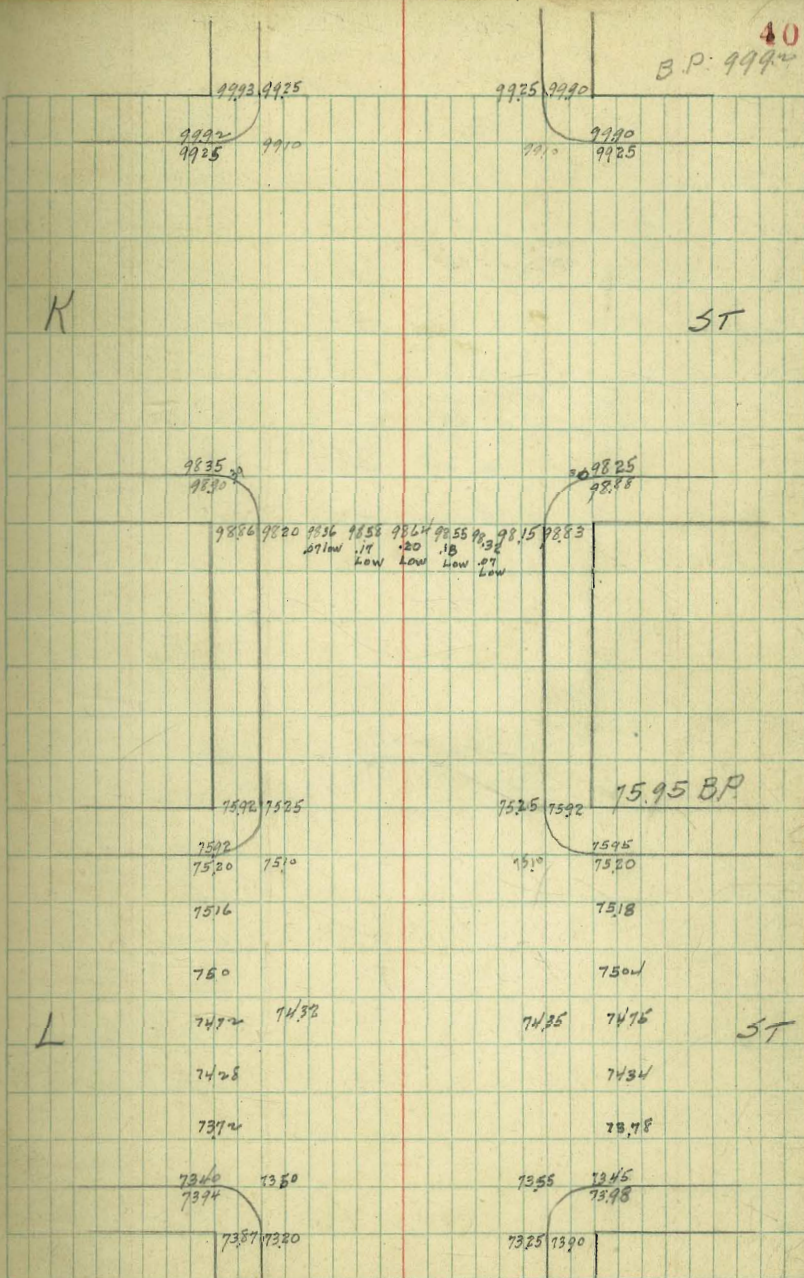 40
B.P. 9992
9993 9925 9925 9990
9992 9990
9925 9910 9910 9925
K ST
9835 9825
9890 98.88
9886 9820 9836 9858 9864 9855 98.32 98.15 98.83
.07 low .17 .20 .18 .07
Low Low Low Low
75.95 B.P.
75.92 7525 75.25 7592
7592 7595
75.20 75.10 75.10 75.20
7516 75.18
750 7504
7472 74.32 74.35 7475
L ST
7428 7434
7372 73.78
7340 7350 73.55 7345
7394 73.98
73.87 73.20 73.25 7390